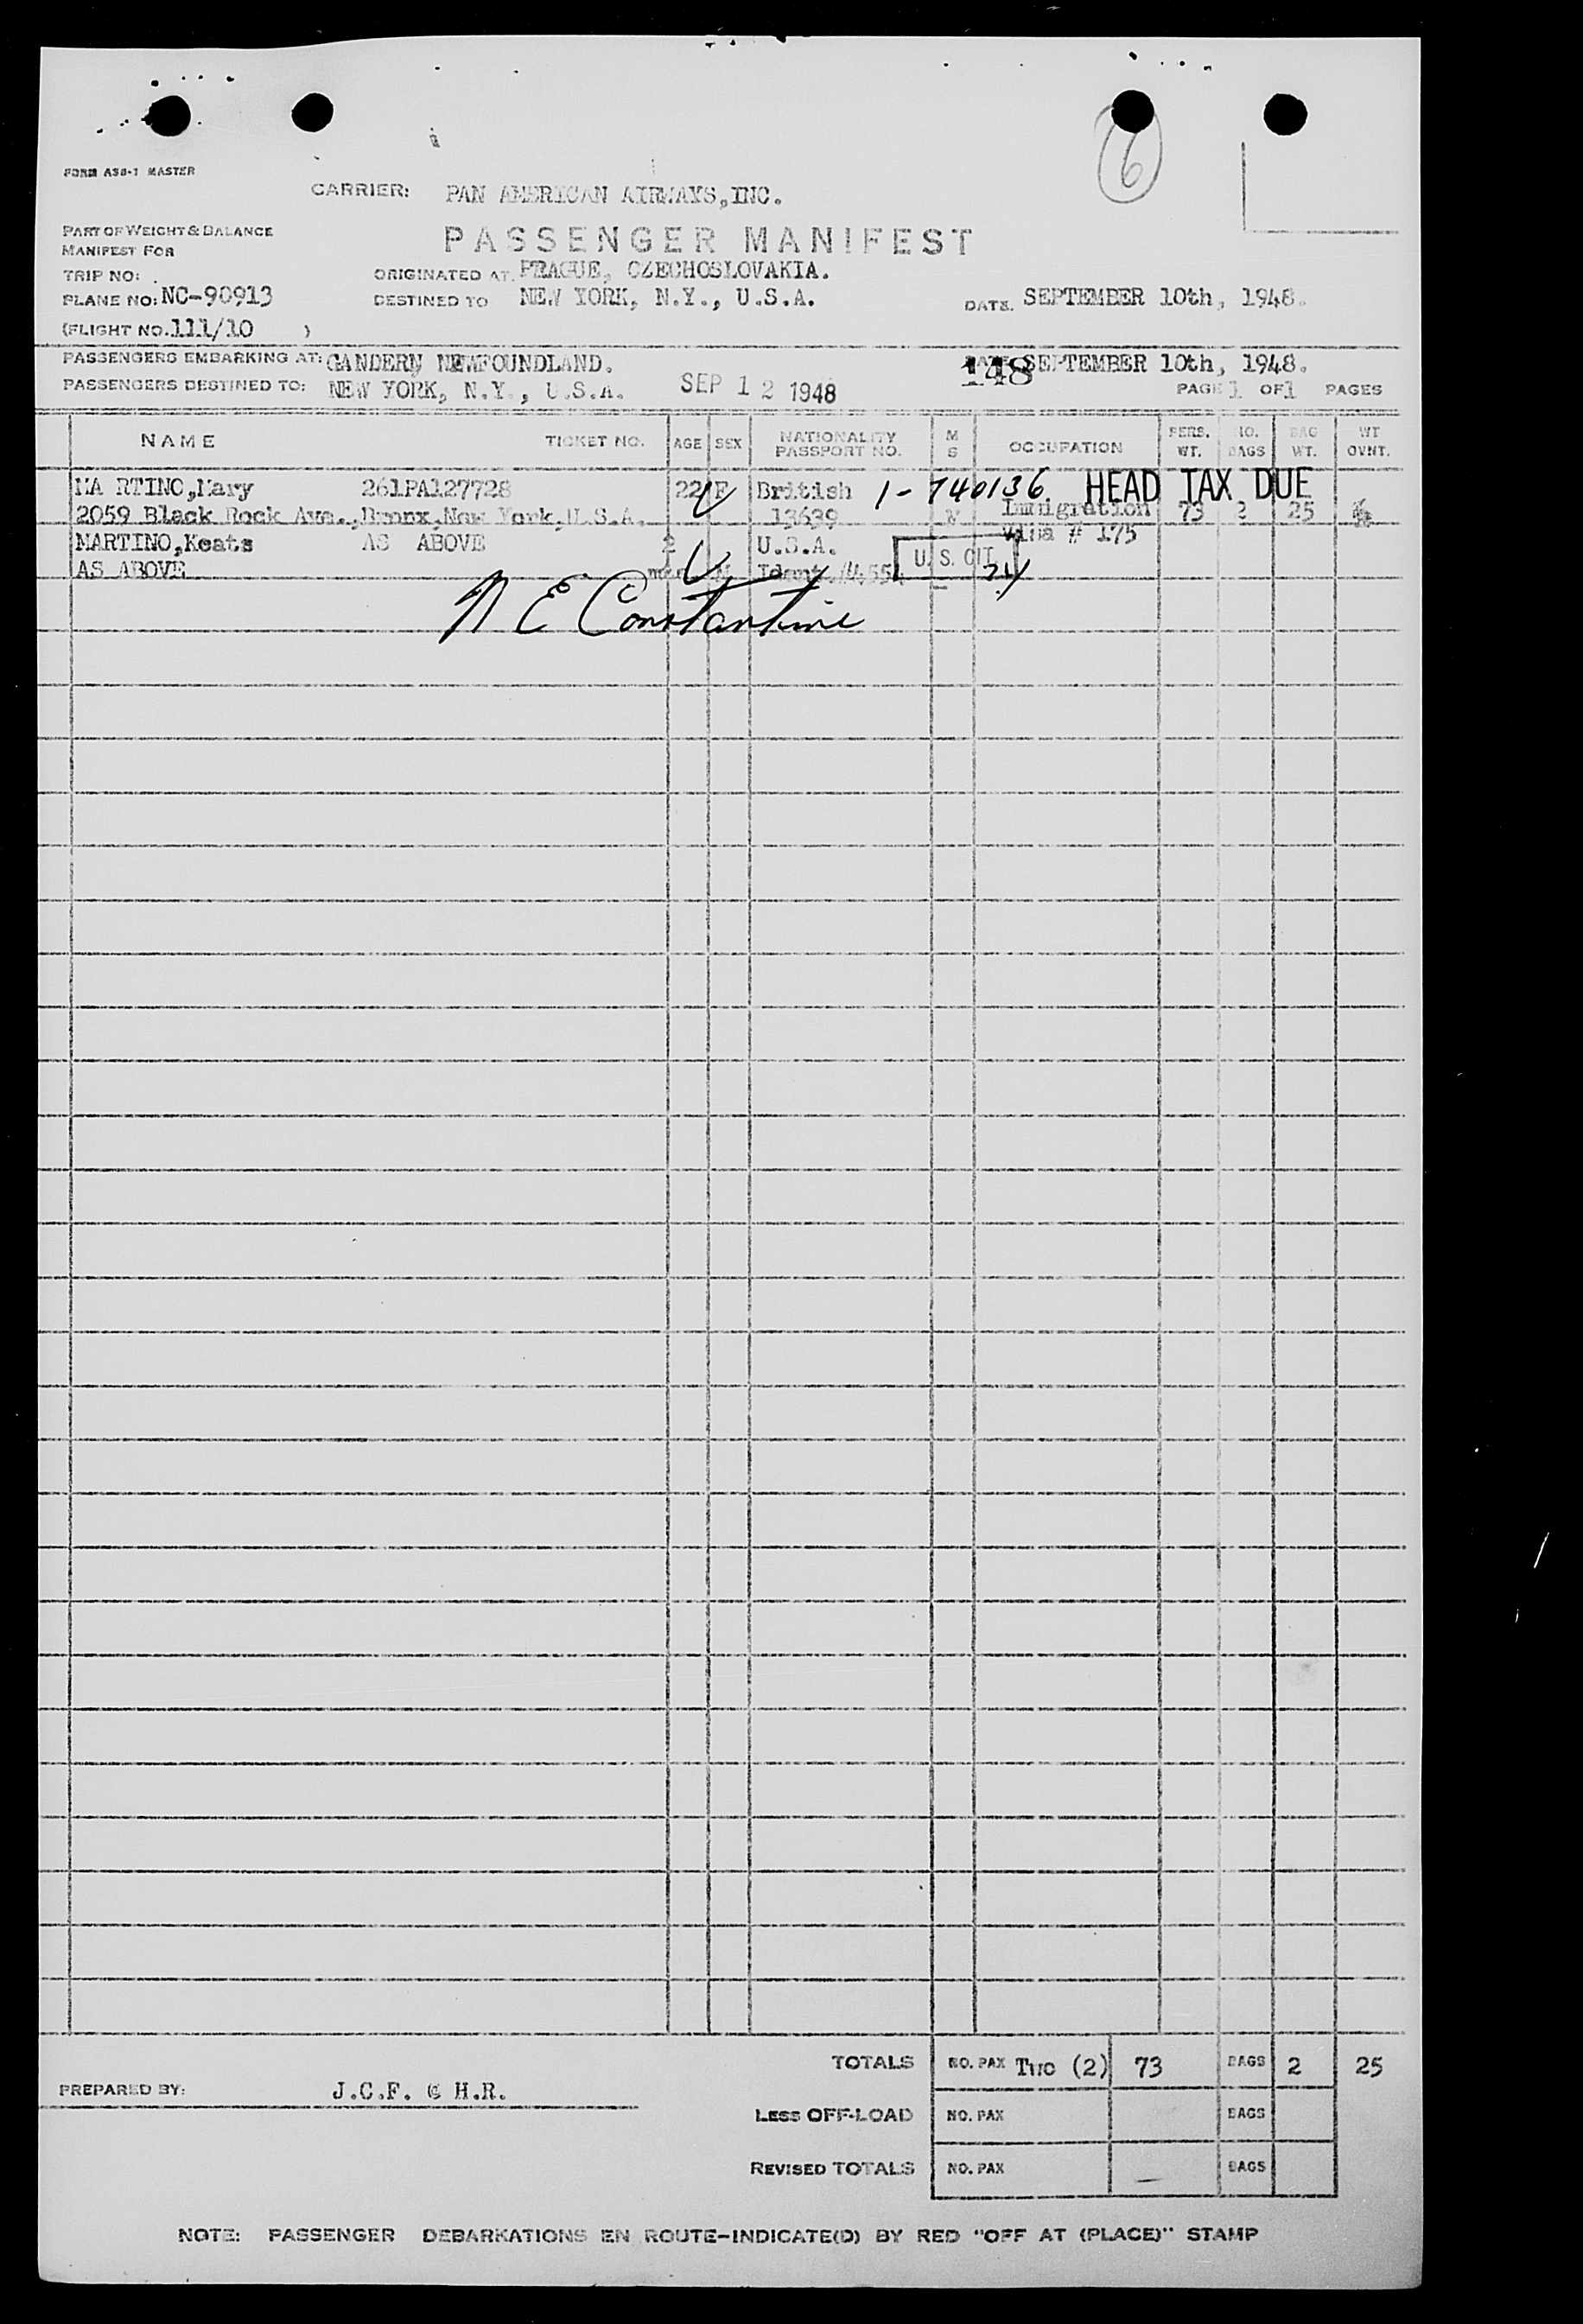 6
FORM A38-1 MASTER
CARRIER: PAN AMERICAN AIRWAYS,INC.
PART OF WEIGHT & BALANCE
MANIFEST FOR
PASSENGER MANIFEST
TRIP NO:
ORIGINATED AT. PRAGUE, CZECHOSLOVAKIA.
PLANE NO: NC-90913
DESTINED TO NEW YORK, N.Y., U.S.A.
DATE. SEPTEMBER 10th, 1948.
(FLIGHT NO. 111/10 )
PASSENGERS EMBARKING AT: GANDERN NEWFOUNDLAND.
DATE SEPTEMBER 10th, 1948.
148
PASSENGERS DESTINED TO: NEW YORK, N.Y., U.S.A.
SEP 12 1948
PAGE 1 OF 1 PAGES
NAME TICKET NO. AGE SEX NATIONALITY PASSPORT NO. M S OCCUPATION PERS. WT. NO. BAGS BAG WT. WT OVNT.
MA RTINO,Mary 261PA127728 22 F British 1-740136 HEAD TAX DUE
2059 Black Rock Ave.,Bronx,New York,U.S.A. 13639 Immigration 73 2 25
Visa # 175
MARTINO,Keats AS ABOVE 2 U.S.A. U. S. CIT
AS ABOVE M Ident.
N E Constantine
TOTALS NO. PAX Two (2) 73 BAGS 2 25
PREPARED BY: J.C.F. @ H.R.
LESS OFF-LOAD NO. PAX BAGS
REVISED TOTALS NO. PAX BAGS
NOTE: PASSENGER DEBARKATIONS EN ROUTE-INDICATE(D) BY RED "OFF AT (PLACE)" STAMP